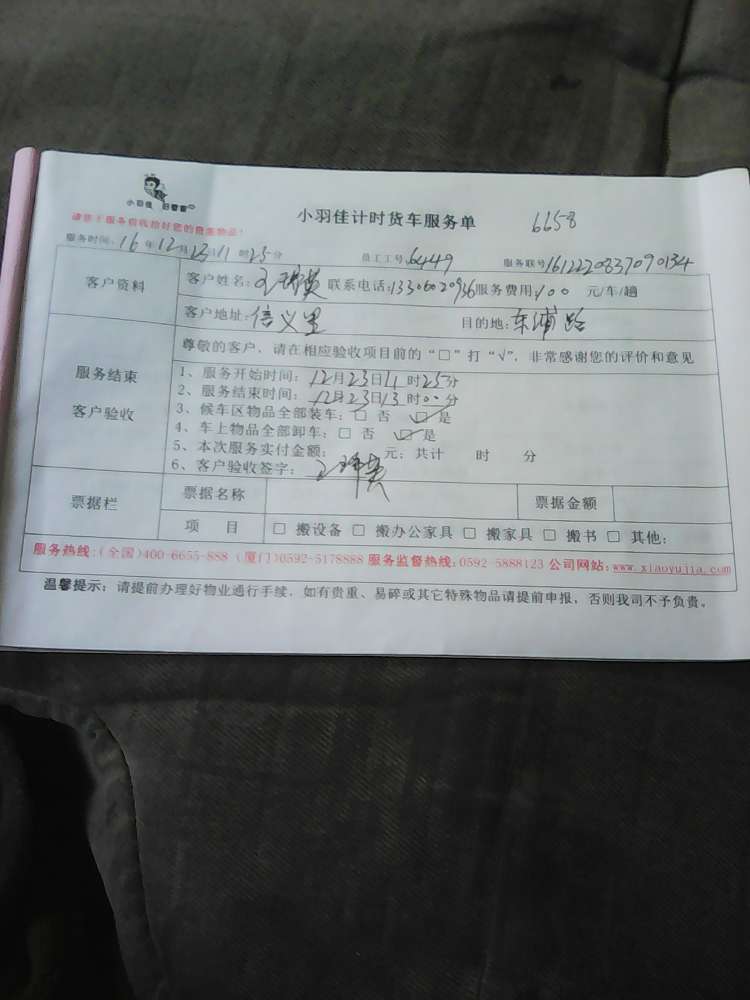 小羽佳 田管管
小羽佳计时货车服务单 6658
服务时间：16年12月23日11时25分 员工工号：6449 服务联号161222083709 0134
客户资料
客户姓名：王 黄 联系电话：13306020936 服务费用：100 元/车/趟
客户地址：信义里 目的地：东浦路
服务结束
客户验收
尊敬的客户，请在相应验收项目前的“□”打“√”，非常感谢您的评价和意见
1、服务开始时间：12月23日11时25分
2、服务结束时间：12月23日13时00分
3、候车区物品全部装车：□ 否 ☑ 是
4、车上物品全部卸车：□ 否 ☑ 是
5、本次服务实付金额： 元；共计 时 分
6、客户验收签字：王 黄
票据栏
票据名称 票据金额
项 目 □ 搬设备 □ 搬办公家具 □ 搬家具 □ 搬书 □ 其他：
服务热线：（全国）400-6655-888 （厦门）0592-5178888 服务监督热线：0592-5888123 公司网站：www.xiaoyujia.com
温馨提示：请提前办理好物业通行手续，如有贵重、易碎或其它特殊物品请提前申报，否则我司不予负责。